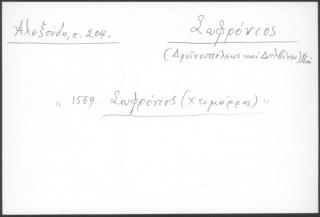 Ἀλεξούδη, σ. 204.
Σωφρόνιος
(Δρυϊνουπόλεως καὶ Δελβίνου)
„ 1569. Σωφρόνιος (Χειμάρρας) "